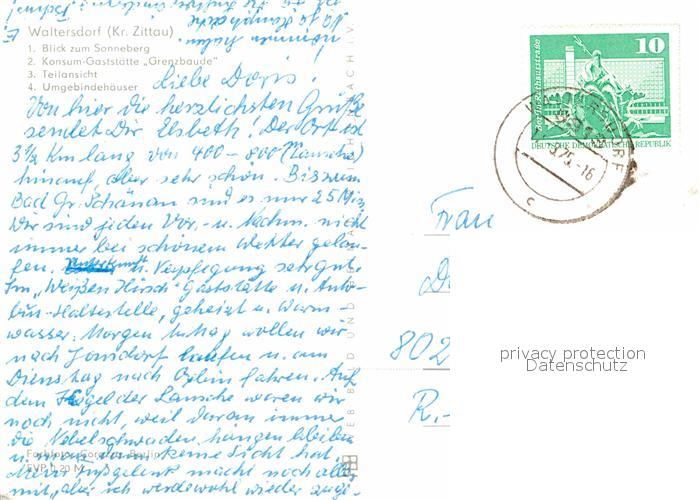 Waltersdorf (Kr. Zittau)
1. Blick zum Sonneberg
2. Konsum-Gaststätte „Grenzbaude"
3. Teilansicht
4. Umgebindehäuser
Liebe Doris!
Von hier die herzlichsten Grüße
sendet Dir Elsbeth! Der Ort ist
3½ Km lang von 400 – 800 (Lausche)
hinauf, aber sehr schön. Bis zum
Bad Gr. Schönau sind es nur 25 Min.
Wir sind jeden Vor.- u. Nachm. nicht
immer bei schönem Wetter gelau-
fen. u. Verpflegung sehr gut.
Im „Weißen Hirsch" Gaststätte u. Auto-
bus-Haltestelle, geheizt u. Warm-
wasser. Morgen wollen wir
nach Jonsdorf laufen u. am
Dienstag nach Oybin fahren. Auf
dem Kegel der Lausche waren wir
noch nicht, weil daran immer
die Nebelschwaden hängen bleiben
u. man dann keine Sicht hat.
Mein Fußgelenk macht noch alles
mit, aber ich werde wohl wieder
Berlin
EVP 0,20 M
10
Berlin · Rathausstraße
DEUTSCHE DEMOKRATISCHE REPUBLIK
Frau
802
R.-
privacy protection
Datenschutz